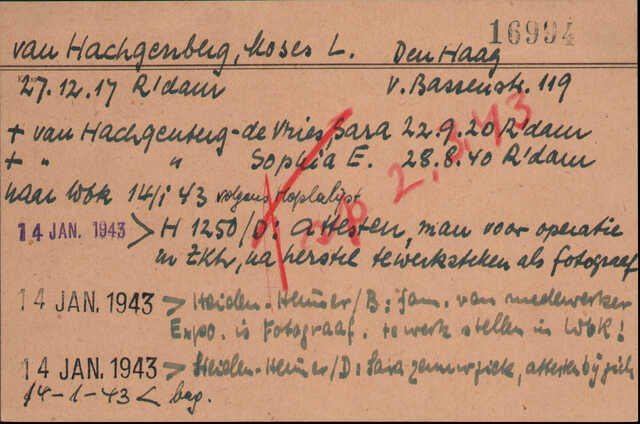 16994
van Hachgenberg, Moses L. Den Haag
27.12.17 R'dam v. Bassenstr. 119
+ van Hachgenberg-de Vries, Sara 22.9.20 R'dam
+ " " Sophia E. 28.8.40 R'dam
naar Wbk 14/1 43 volgens
14 JAN. 1943 > H 1250/D: attesten, man voor operatie
in Zkh, na herstel tewerkstellen als fotograaf
14 JAN. 1943 > Heiden-Heimer/B: fam. van medewerker
Expo. is Fotograaf. te werk stellen in Wbk!
14 JAN. 1943 > Heiden-Heimer/D: Sara zenuwziek, attesten bij zich
14-1-43 < bag.
2.3.43